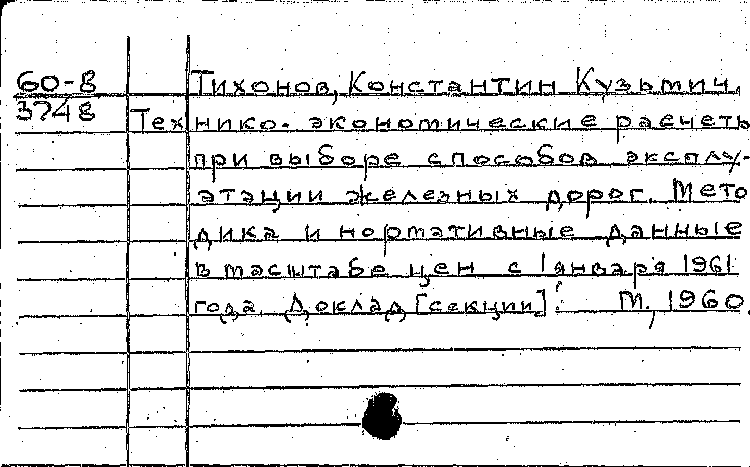 60-8 Тихонов, Константин Кузьмич.
3748 Технико-экономические расчеты
при выборе способов эксплу-
атации железных дорог. Мето
дика и нормативные данные
в масштабе цен с 1 января 1961
года. Доклад [секции]. М., 1960.